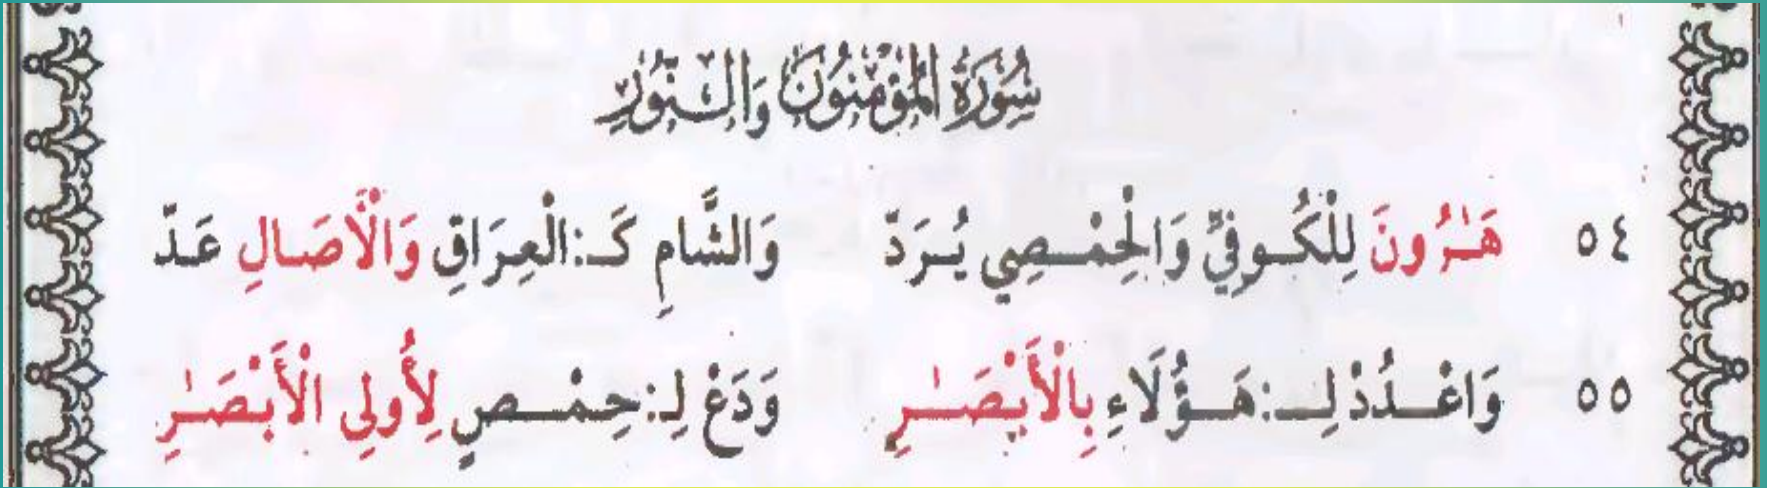 سُورَةُ الْمُؤْمِنُونَ وَالنُّورِ
٥٤ هَـٰرُونَ لِلْكُوفِيِّ وَالْحِمْصِي يُرَدّ وَالشَّامِ كَـ:الْعِرَاقِ وَالْأَصَالِ عَدّ
٥٥ وَاعْدُدْ لِـ:هَـؤُلَاءِ بِالْأَبْصَـٰرِ وَدَعْ لِـ:حِمْصٍ لِأُولِى الْأَبْصَـٰرِ